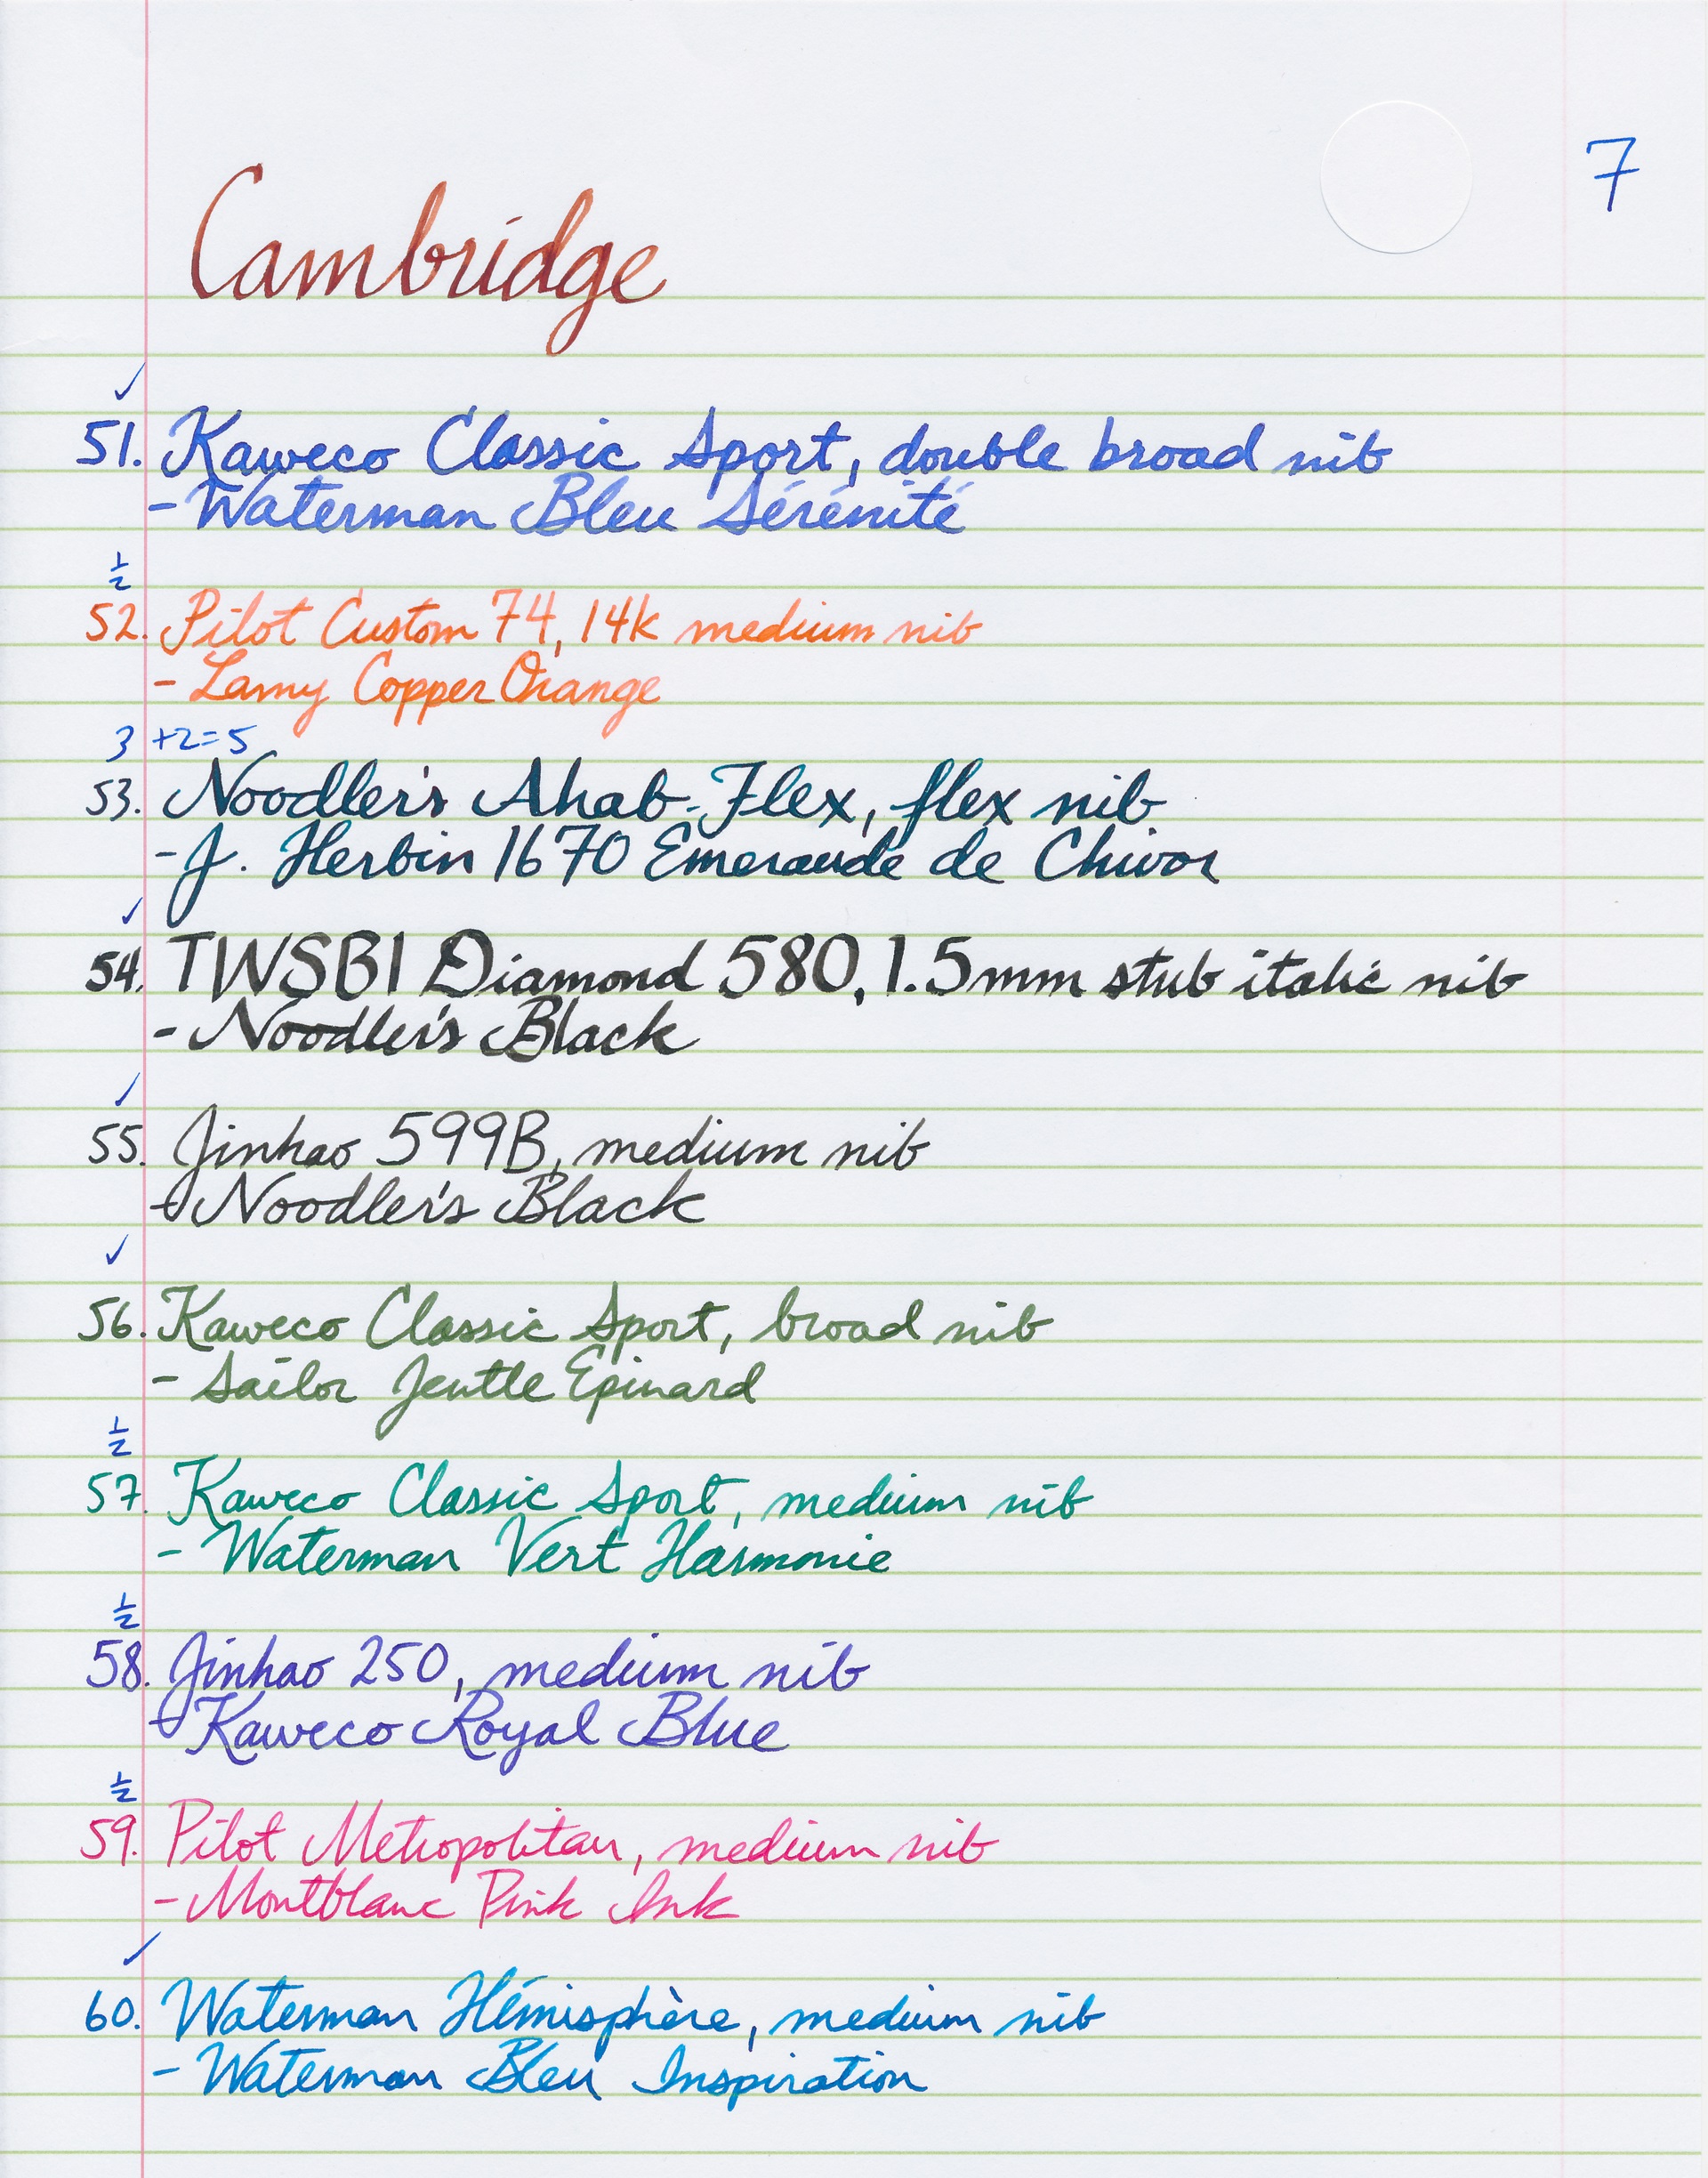 7
Cambridge
✓
51. Kaweco Classic Sport, double broad nib
- Waterman Bleu Sérénité
1/2
52. Pilot Custom 74, 14k medium nib
- Lamy Copper Orange
3 +2=5
53. Noodler's Ahab-Flex, flex nib
- J. Herbin 1670 Emeraude de Chivor
✓
54. TWSBI Diamond 580, 1.5mm stub italic nib
- Noodler's Black
✓
55. Jinhao 599B, medium nib
- Noodler's Black
✓
56. Kaweco Classic Sport, broad nib
- Sailor Jentle Epinard
1/2
57. Kaweco Classic Sport, medium nib
- Waterman Vert Harmonie
1/2
58. Jinhao 250, medium nib
- Kaweco Royal Blue
1/2
59. Pilot Metropolitan, medium nib
- Montblanc Pink Ink
✓
60. Waterman Hémisphère, medium nib
- Waterman Bleu Inspiration